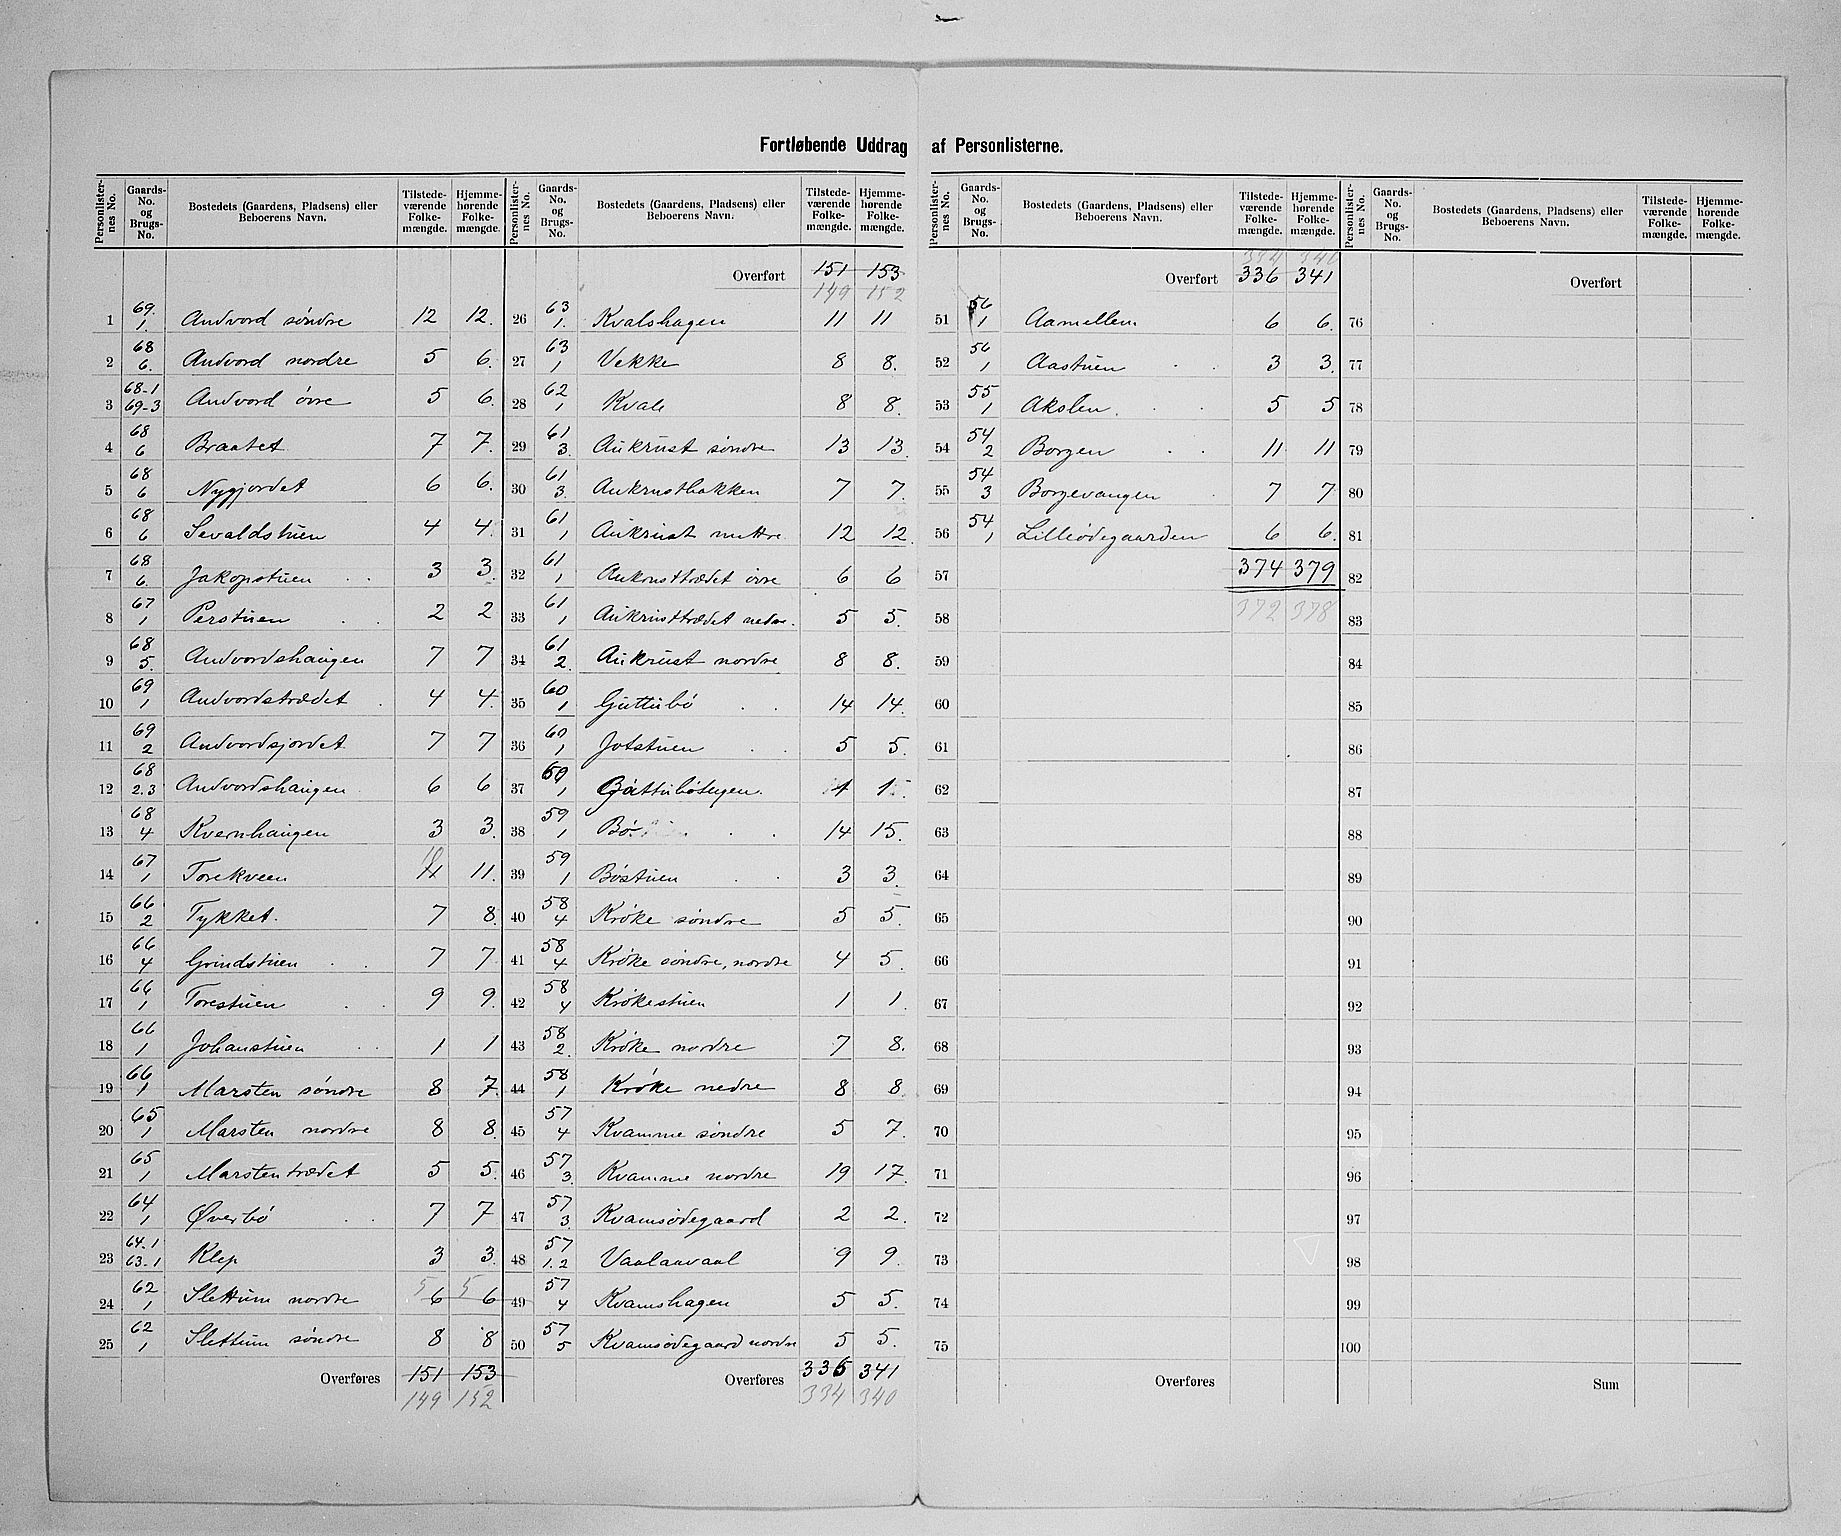 Fortløbende Uddrag af Personlisterne.
Personlister-nes No. Gaards-No. og Brugs-No. Bostedets (Gaardens, Pladsens) eller Beboerens Navn. Tilstede-værende Folke-mængde. Hjemme-hørende Folke-mængde.
1 69. 1. Andvord søndre 12 12.
2 68 6. Andvord nordre 5 6.
3 68-1 69-3 Andvord øvre 5 6.
4 68 6 Braatet 7 7.
5 68 6 Nygjordet 6 6.
6 68 6 Sevaldstuen 4 4.
7 68 6. Jakopstuen 3 3.
8 67 1 Perstuen 2 2
9 68 5. Andvordshaugen 7 7
10 69 1 Andvordstrædet 4 4.
11 69 2 Andvordsjordet 7 7
12 68 2.3 Andvordshaugen 6 6
13 68 4 Kvernhaugen 3 3.
14 67 1 Torekveen 11 10 11.
15 66 2 Tykket. 7 8.
16 66 4 Grindstuen 7 7.
17 66 1 Torestuen 9 9.
18 66 1 Johanstuen 1 1
19 66 1 Marsten søndre 8 7.
20 65 1 Marsten nordre 8 8.
21 65 1 Marstentrædet 5 5.
22 64 1 Øverbø 7 7
23 64-1 63-1 Klep 3 3.
24 62 1 Slettum nordre 5 6 5 6
25 62 1 Slettum søndre 8 8
Overføres 151 153
149 152
Personlister-nes No. Gaards-No. og Brugs-No. Bostedets (Gaardens, Pladsens) eller Beboerens Navn. Tilstede-værende Folke-mængde. Hjemme-hørende Folke-mængde.
Overført 151 153
149 152
26 63 1. Kvalshagen 11 11
27 63 1 Vekke 8 8.
28 62 1 Kvale 8 8.
29 61 3. Aukrust søndre 13 13.
30 61 3. Aukrustbakken 7 7.
31 61 1 Aukrust mittre 12 12.
32 61 1 Aukrusttrædet øvre 6 6
33 61 1 Aukrusttrædet nedre. 5 5.
34 61 2. Aukrust nordre 8 8.
35 60 1 Guttubø 14 14.
36 60 1 Jotstuen 5 5.
37 59 1 1 1
38 59 1 Bø 14 15.
39 59 1 Bøstuen 3 3.
40 58 4 Krøke søndre 5 5.
41 58 4 Krøke søndre, nordre 4 5.
42 58 4 Krøkestuen 1 1.
43 58 2. Krøke nordre 7 8.
44 58 1 Krøke nedre 8 8.
45 57 4 Kvamme søndre 5 7.
46 57 3. Kvamme nordre 19 17.
47 57 3. Kvamsødegaard 2 2.
48 57 1.2 Vaalaavaal 9 9.
49 57 4 Kvamshagen 5 5.
50 57 5 Kvamsødegaard nordre 5 5.
Overføres 336 341
334 340
Personlister-nes No. Gaards-No. og Brugs-No. Bostedets (Gaardens, Pladsens) eller Beboerens Navn. Tilstede-værende Folke-mængde. Hjemme-hørende Folke-mængde.
334 340
Overført 336 341
51 56 1 Aamellem 6 6.
52 56 1 Aastuen 3 3.
53 55 1 Akslen. 5 5
54 54 2 Borgen 11 11
55 54 3 Borgevangen 7 7
56 54 1 Lilleødegaarden 6 6.
57 374 379
58 372 378
59
60
61
62
63
64
65
66
67
68
69
70
71
72
73
74
75
Overføres
Personlister-nes No. Gaards-No. og Brugs-No. Bostedets (Gaardens, Pladsens) eller Beboerens Navn. Tilstede-værende Folke-mængde. Hjemme-hørende Folke-mængde.
Overført
76
77
78
79
80
81
82
83
84
85
86
87
88
89
90
91
92
93
94
95
96
97
98
99
100
Sum